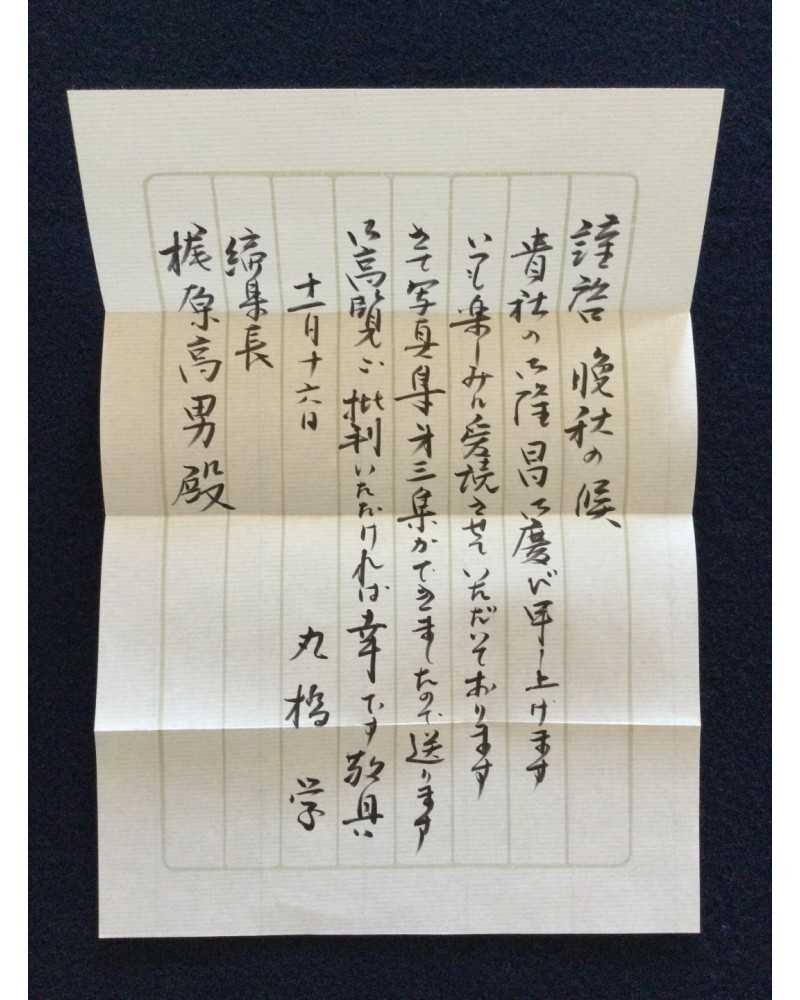 謹啓 晩秋の候
貴社の御隆昌御慶び申し上げます
いつも楽しみに愛読させていただいております
さて写真集第三集ができましたので送ります
御高覧ご批判いただければ幸です 敬具
十一月十六日 丸橋 学
編集長
梶原高男殿